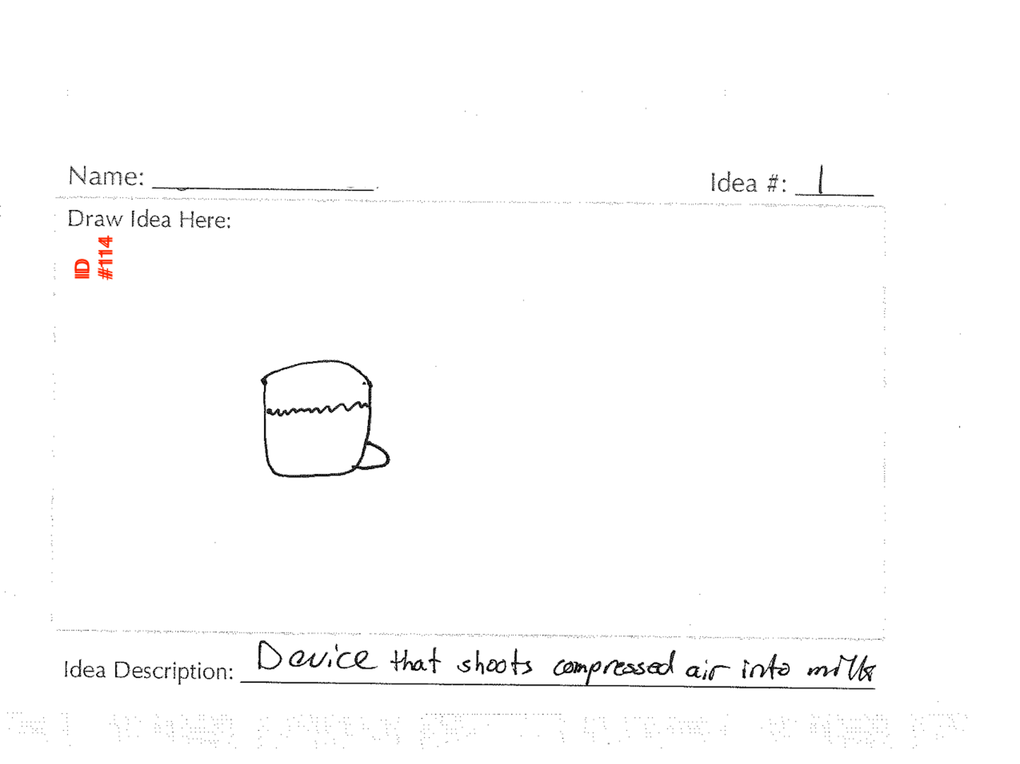 Name:
Idea #: 1
Draw Idea Here:
IID
#114
Idea Description: Device that shoots compressed air into milk